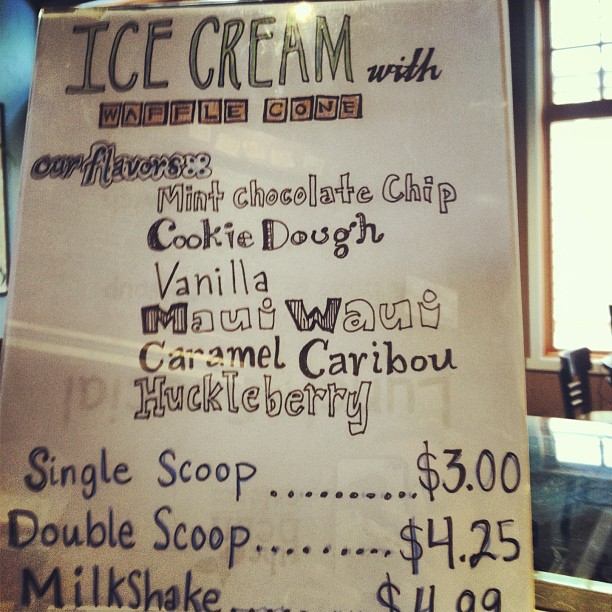 ICE CREAM with
WAFFLE CONE
our flavors
Mint chocolate Chip
Cookie Dough
Vanilla
Maui Waui
Caramel Caribou
Huckleberry
Single Scoop ............$3.00
Double Scoop..........$4.25
Milkshake.........$4.99